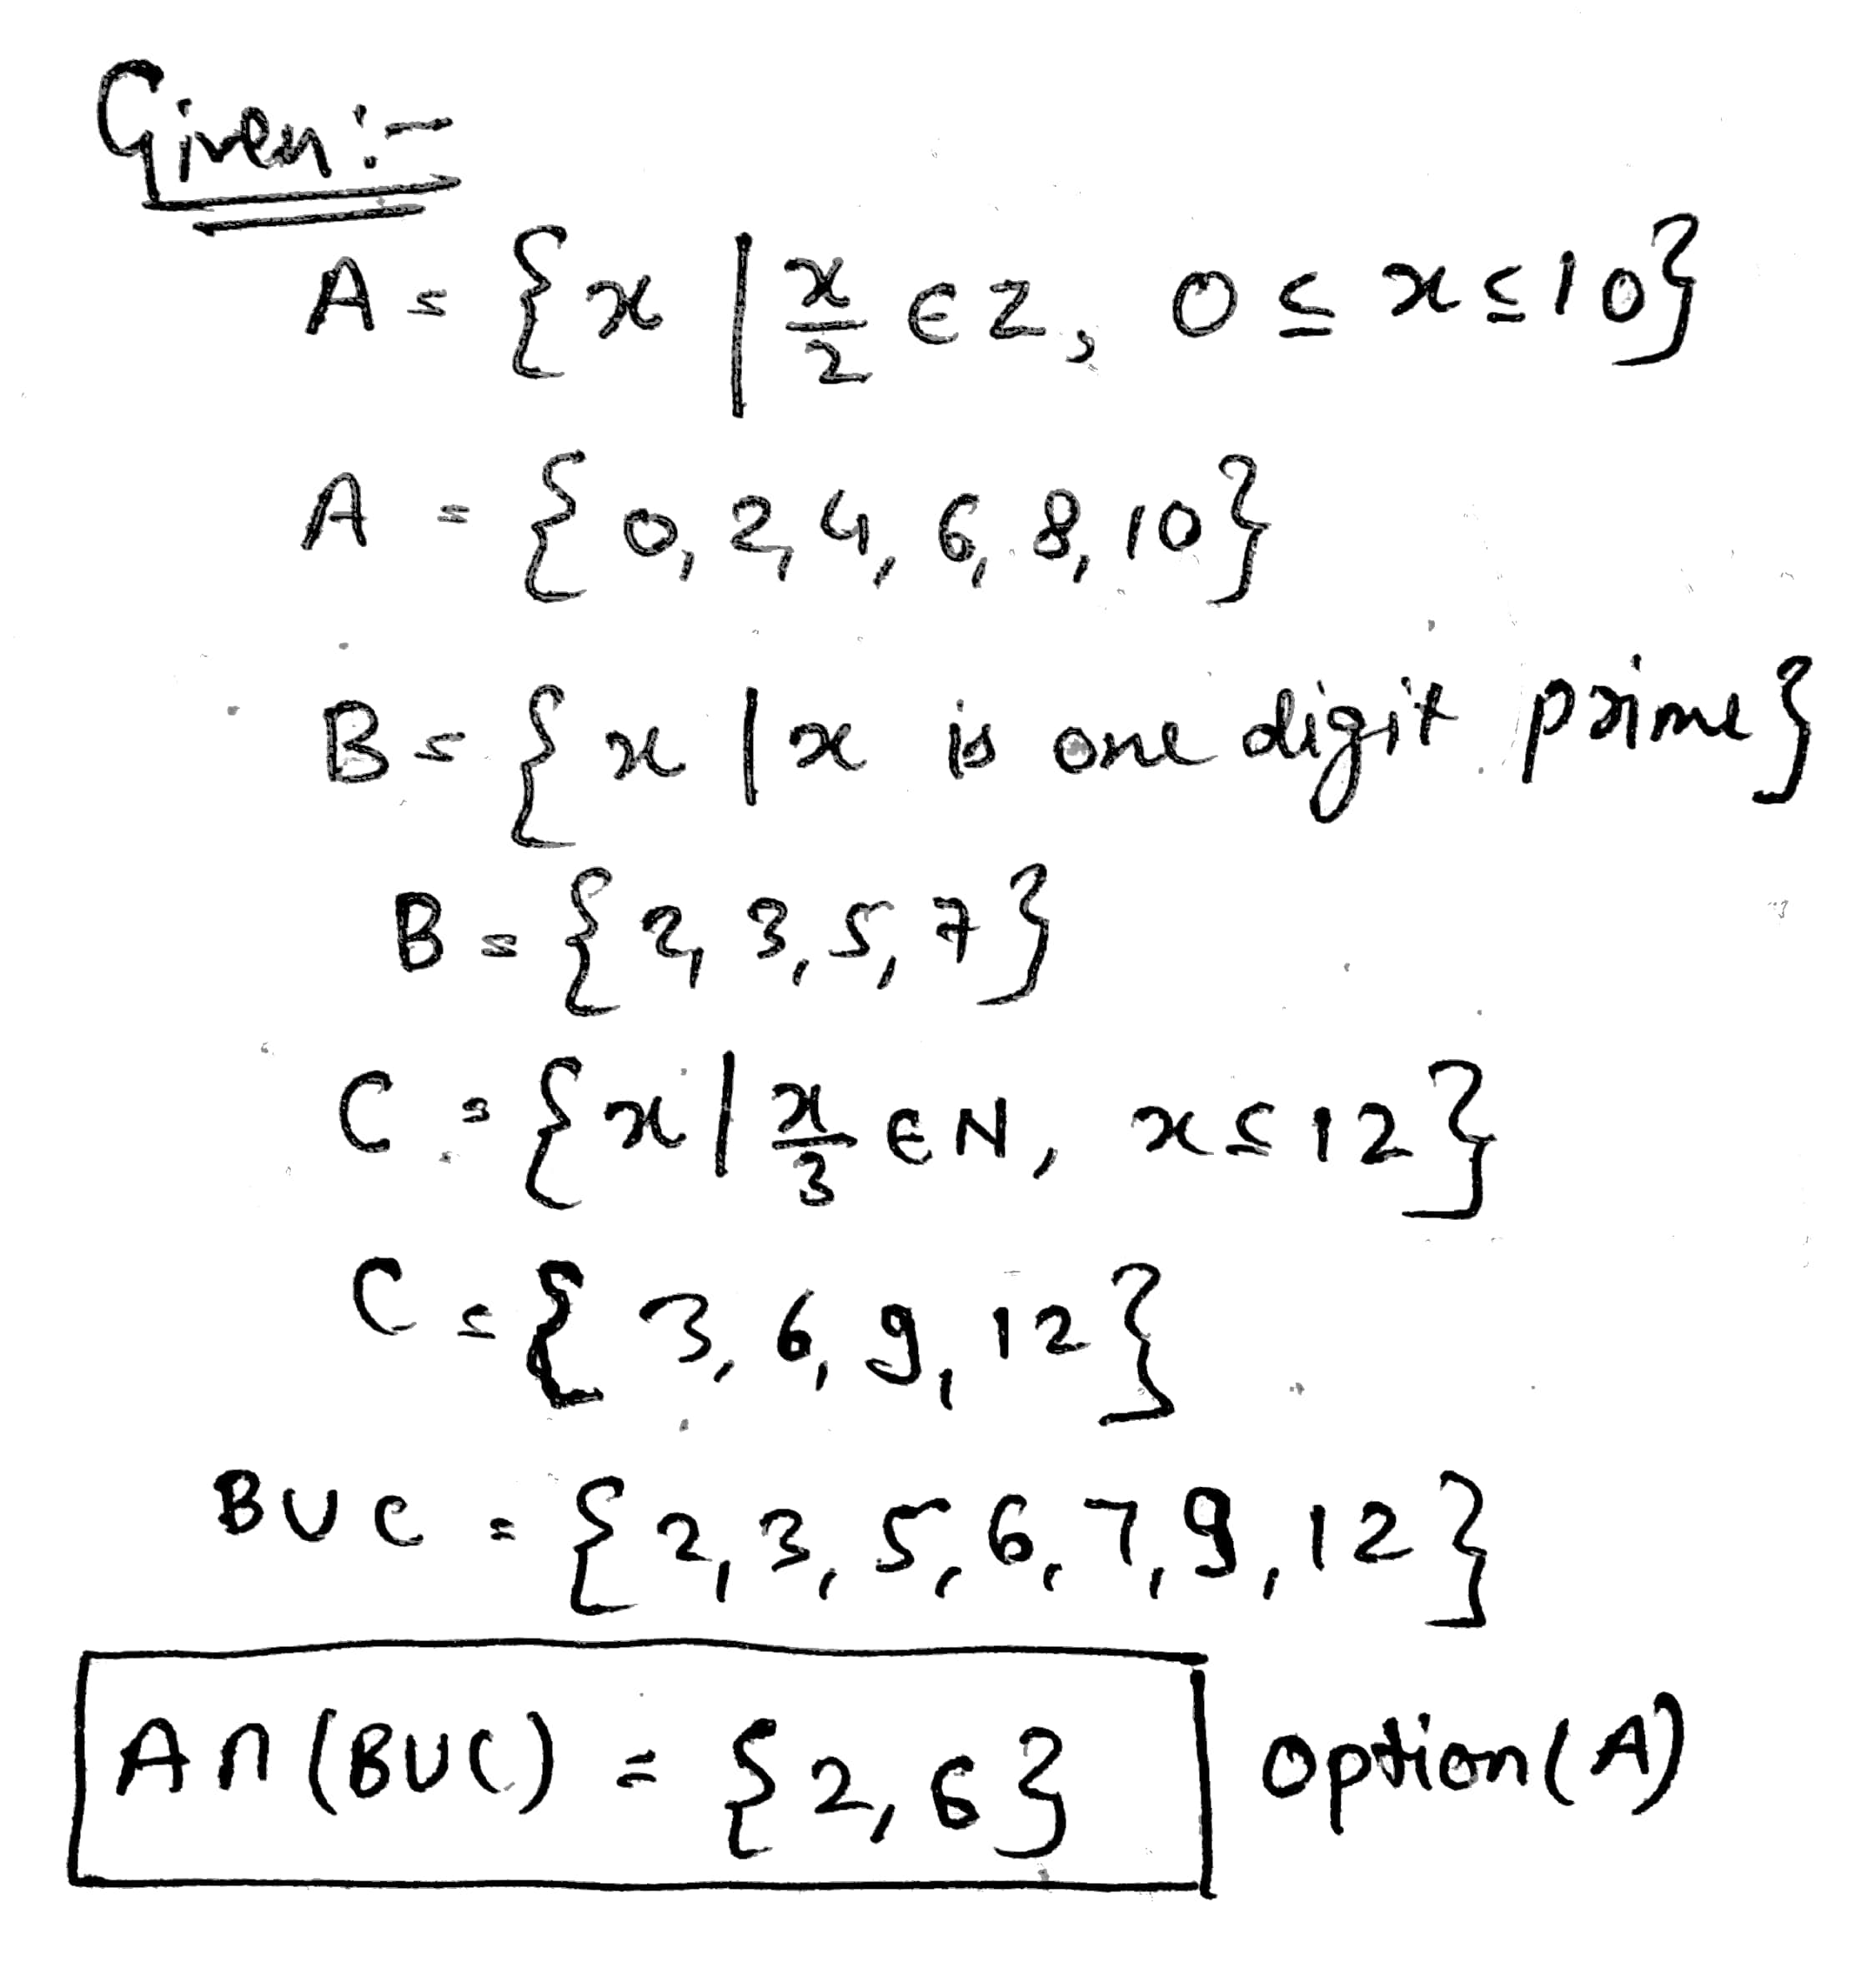 Given:-
A = {x | x/2 ∈ Z, 0 ≤ x ≤ 10}
A = {0, 2, 4, 6, 8, 10}
B = {x | x is one digit prime}
B = {2, 3, 5, 7}
C = {x | x/3 ∈ N, x ≤ 12}
C = {3, 6, 9, 12}
B∪C = {2, 3, 5, 6, 7, 9, 12}
A∩(B∪C) = {2, 6} option(A)